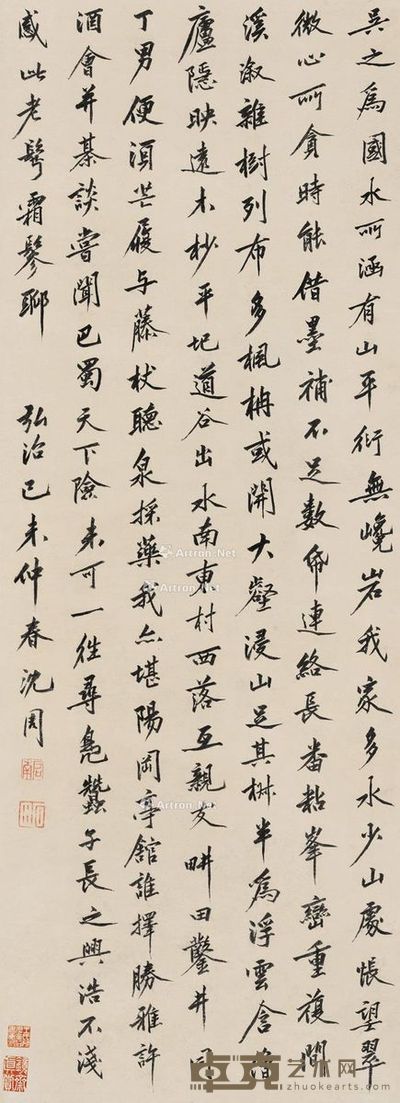 吴之為國水所涵有山平衍無巉岩我家多水少山處悵望翠
微心所貪時能借墨補不足數帋連絡長番粘峯巒重複間
溪溆雜樹列布多楓枏或開大壑浸山足其樹半為浮雲含
廬隱映遠木杪平地道谷出水南東村西落互親友畊田鑿井同
丁男便須芒屨与藤杖聽泉採藥我亦堪陽岡亭館誰擇勝雅許
酒會并棊談嘗聞巴蜀天下險未可一徃尋鳧蠶子長之興浩不淺
感此老髩霜鬖鬖
弘治己未仲春沈周
Artron.Net
Artron.Net
Artron.Net
卓克艺术网
zhuokearts.com